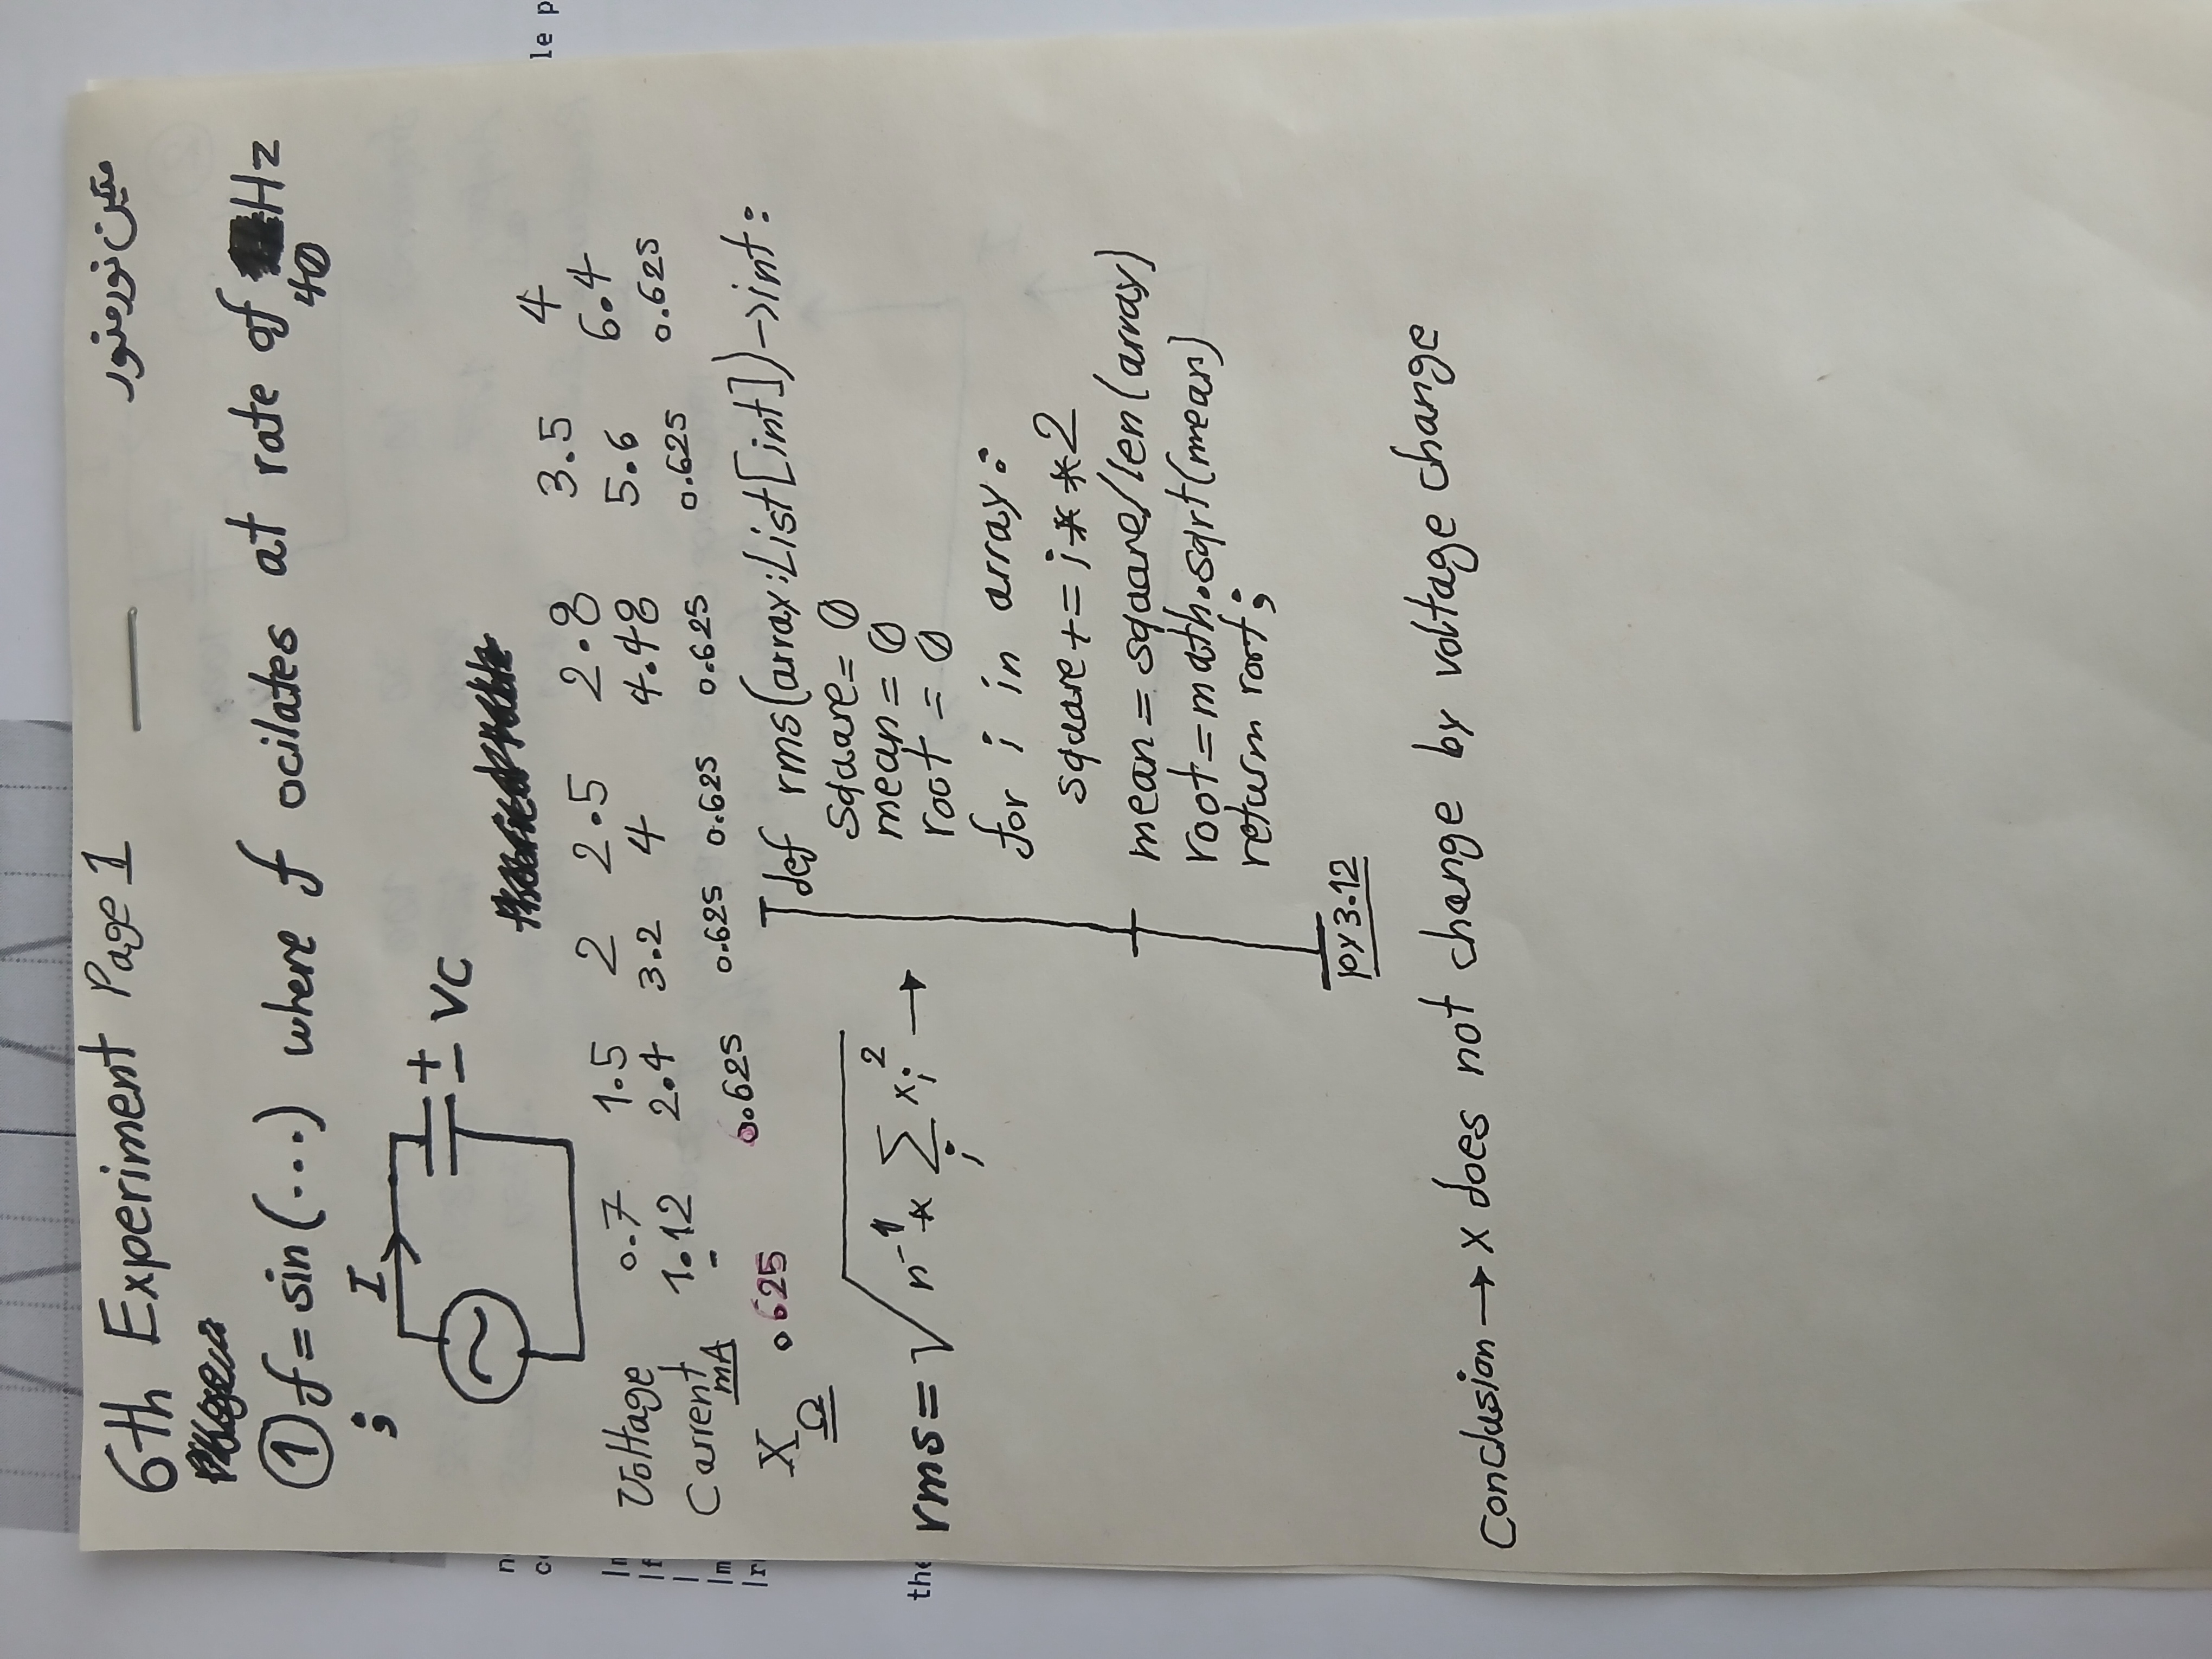 6th Experiment Page 1
متین نورمنور
① f = sin(...) where f ocilates at rate of Hz
40
;
I
+
- VC
Voltage 0.7 1.5 2 2.5 2.8 3.5 4
Current mA 1.12 2.4 3.2 4 4.48 5.6 6.4
X Ω 0.625 0.625 0.625 0.625 0.625 0.625 0.625
rms = √ n⁻¹ * Σ i xᵢ² →
def rms(array:List[int])->int:
square = 0
mean = 0
root = 0
for i in array:
square += i**2
mean = square/len(array)
root = math.sqrt(mean)
return root;
py 3.12
Conclusion → x does not change by voltage change
le p
the